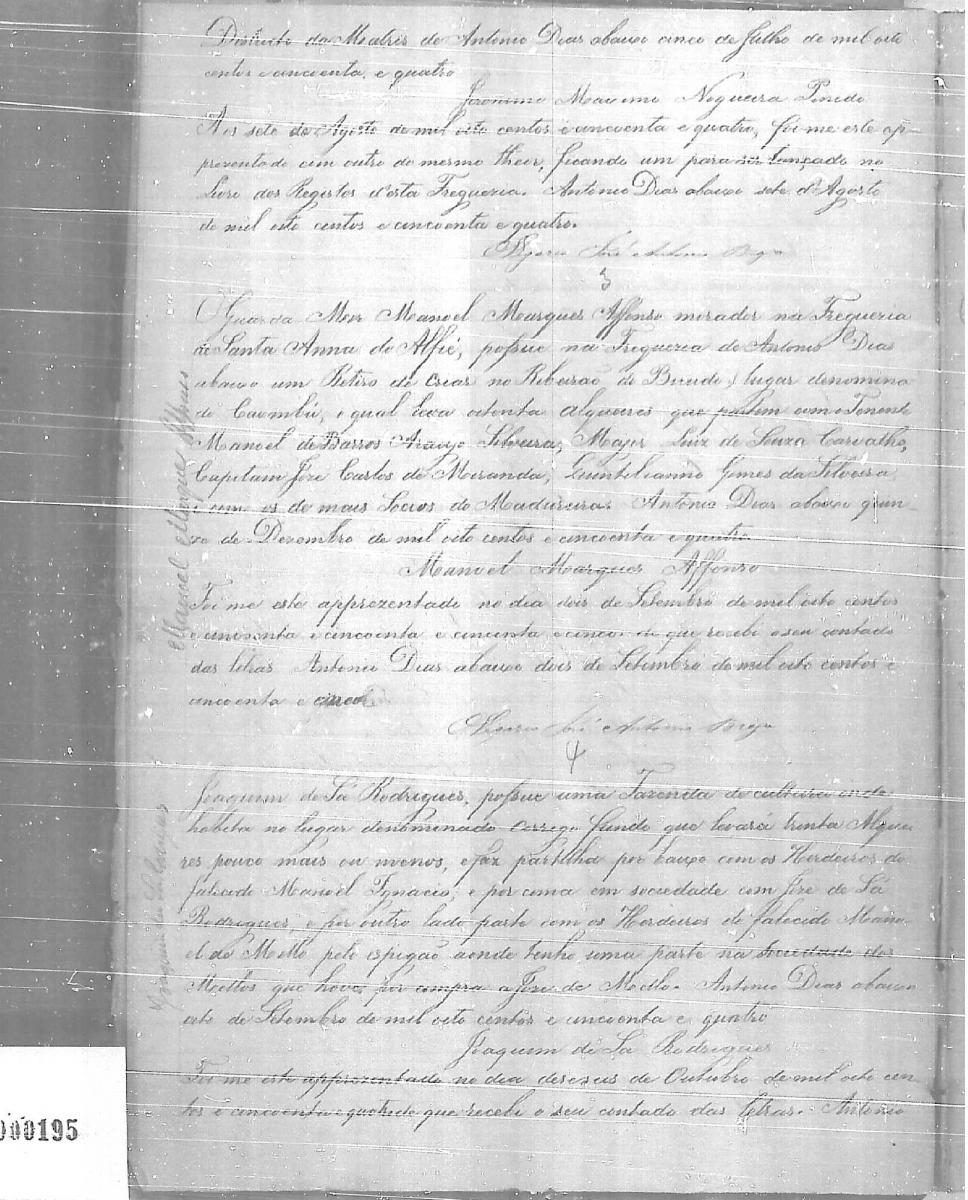 Districto da Matris de Antonio Dias abaixo cinco de Julho de mil oito
centos e cincoenta, e quatro
Jeronimo Maximo Nogueira Penido
Aos sete de Agosto de mil oito centos e cincoenta e quatro, foi me este ap-
prezentado com outro do mesmo theor, ficando um para ser lançado no
Livro dos Registos d'esta Freguezia. Antonio Dias abaixo sete de Agosto
de mil oito centos e cincoenta e quatro.
José Antonio
3
O Guarda Mor Manoel Marques Affonso morador na Freguezia
de Santa Anna do Alfié, possue na Freguezia de Antonio Dias
abaixo um Retiro de crias no Ribeirão do lugar denomina
do a qual leva oitenta alqueires que partem com o Tenente
Manoel de Barros Araujo Silveira, Major Luiz de Souza Carvalho,
Capitam José Carlos de Miranda, Quintilianno Gomes da Silveira
e com os de mais Socios do Madureira. Antonio Dias abaixo quin-
ze de Dezembro de mil oito centos e cincoenta e quatro
Manoel Marques Affonso
Foi me este apprezentado no dia dois de Setembro de mil oito centos
e cincoenta e cincoenta e cincoenta e cinco de que recebi o seu contado
das letras Antonio Dias abaixo dois de Setembro de mil oito centos e
cincoenta e cinco
José Antonio
4
Joaquim de Sá Rodrigues, possue uma Fazenda de cultura onde
habita no lugar denominado Corrego fundo que levará trinta Alquei
res pouco mais ou menos, e faz partilha por baixo com os Herdeiros do
falecido Manoel Ignacio, e por cima em sociedade com José de Sá
Rodrigues, e por outro lado parte com os Herdeiros do falecido Mano
el de Mello pelo espigão aonde tenho uma parte na Sociedade dos
Mellos que houve por compra a José de Mello. Antonio Dias abaixo
oito de Setembro de mil oito centos e cincoenta e quatro
Joaquim de Sá Rodrigues
Foi me este apprezentado no dia deseseis de Outubro de mil oito cen-
tos e cincoenta e quatro do que recebi o seu contado das letras. Antonio
Manoel Marques
Joaquim de Sá
000195